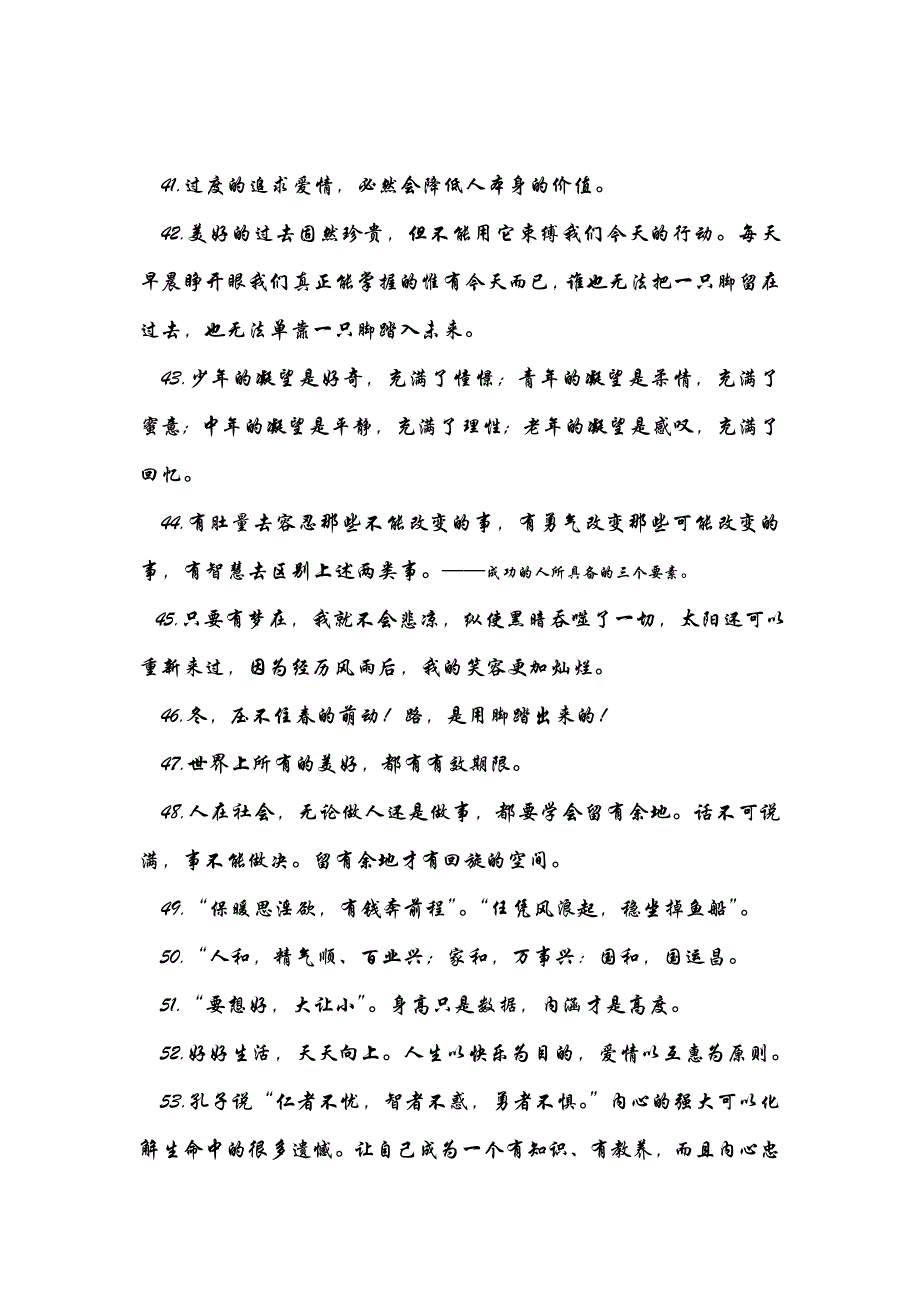 41.过度的追求爱情，必然会降低人本身的价值。
42.美好的过去固然珍贵，但不能用它束缚我们今天的行动。每天
早晨睁开眼我们真正能掌握的惟有今天而已，谁也无法把一只脚留在
过去，也无法单靠一只脚踏入未来。
43.少年的凝望是好奇，充满了憧憬；青年的凝望是柔情，充满了
蜜意；中年的凝望是平静，充满了理性；老年的凝望是感叹，充满了
回忆。
44.有肚量去容忍那些不能改变的事，有勇气改变那些可能改变的
事，有智慧去区别上述两类事。——成功的人所具备的三个要素。
45.只要有梦在，我就不会悲凉，纵使黑暗吞噬了一切，太阳还可以
重新来过，因为经历风雨后，我的笑容更加灿烂。
46.冬，压不住春的萌动！路，是用脚踏出来的！
47.世界上所有的美好，都有有效期限。
48.人在社会，无论做人还是做事，都要学会留有余地。话不可说
满，事不能做决。留有余地才有回旋的空间。
49.“保暖思淫欲，有钱奔前程”。“任凭风浪起，稳坐掉鱼船”。
50.“人和，精气顺、百业兴；家和，万事兴；国和，国运昌。
51.“要想好，大让小”。身高只是数据，内涵才是高度。
52.好好生活，天天向上。人生以快乐为目的，爱情以互惠为原则。
53.孔子说“仁者不忧，智者不惑，勇者不惧。”内心的强大可以化
解生命中的很多遗憾。让自己成为一个有知识、有教养，而且内心忠